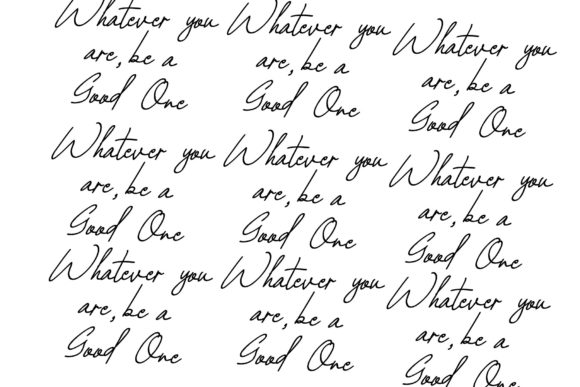 Whatever you
are, be a
Good One
Whatever you
are, be a
Good One
Whatever you
are, be a
Good One
Whatever you
are, be a
Good One
Whatever you
are, be a
Good One
Whatever you
are, be a
Good One
Whatever you
are, be a
Good One
Whatever you
are, be a
Good One
Whatever you
are, be a
Good One